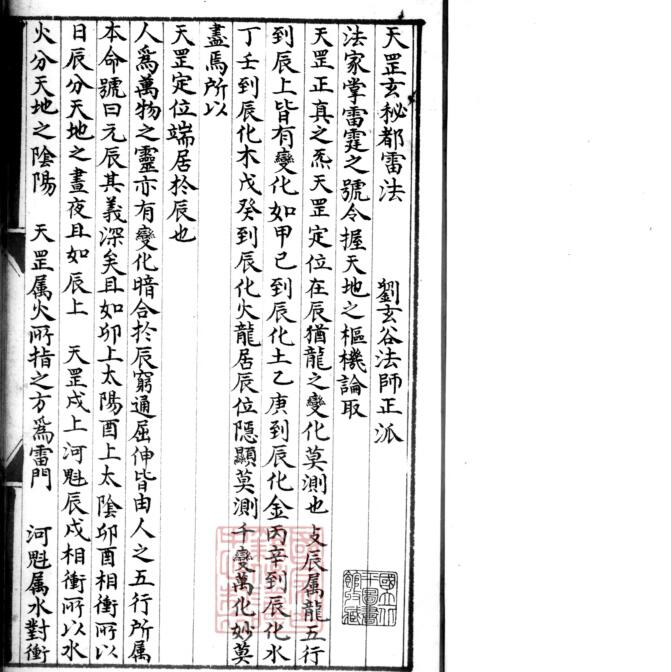 天罡玄秘都雷法　劉玄谷法師正派
法家掌雷霆之號令握天地之樞機論取
天罡正真之炁天罡定位在辰猶龍之變化莫測也支辰属龍五行
到辰上皆有變化如甲己到辰化土乙庚到辰化金丙辛到辰化水
丁壬到辰化木戊癸到辰化火龍居辰位隱顯莫測千變萬化妙莫
盡焉所以
天罡定位端居於辰也
人為萬物之靈亦有變化暗合於辰窮通屈伸皆由人之五行所属
本命號曰元辰其義深矣且如卯上太陽酉上太陰卯酉相衝所以
日辰分天地之晝夜且如辰上　天罡戌上河魁辰戌相衝所以水
火分天地之陰陽　天罡属火所指之方為雷門　河魁属水對衝